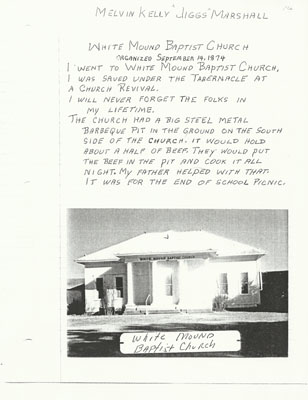 MELVIN KELLY "JIGGS" MARSHALL
WHITE MOUND BAPTIST CHURCH
ORGANIZED SEPTEMBER 14, 1874
I WENT TO WHITE MOUND BAPTIST CHURCH,
I WAS SAVED UNDER THE TABERNACLE AT
A CHURCH REVIVAL.
I WILL NEVER FORGET THE FOLKS IN
MY LIFETIME.
THE CHURCH HAD A BIG STEEL METAL
BARBEQUE PIT IN THE GROUND ON THE SOUTH
SIDE OF THE CHURCH. IT WOULD HOLD
ABOUT A HALF OF BEEF. THEY WOULD PUT
THE BEEF IN THE PIT AND COOK IT ALL
NIGHT. MY FATHER HELPED WITH THAT.
IT WAS FOR THE END OF SCHOOL PICNIC.
WHITE MOUND BAPTIST CHURCH
White Mound
Baptist Church